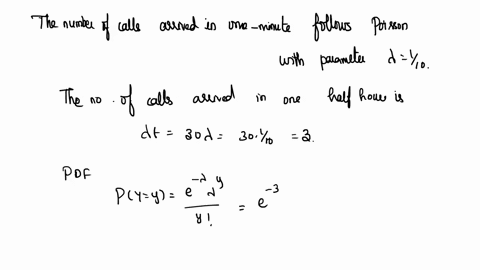 The number of calls arrived in one-minute follows Poisson
with parameter λ=1/10.
The no. of calls arrived in one half hour is
λt = 30λ = 30·1/10 = 3.
PDF
P(Y=y) = e^-λ λ^y / y! = e^-3